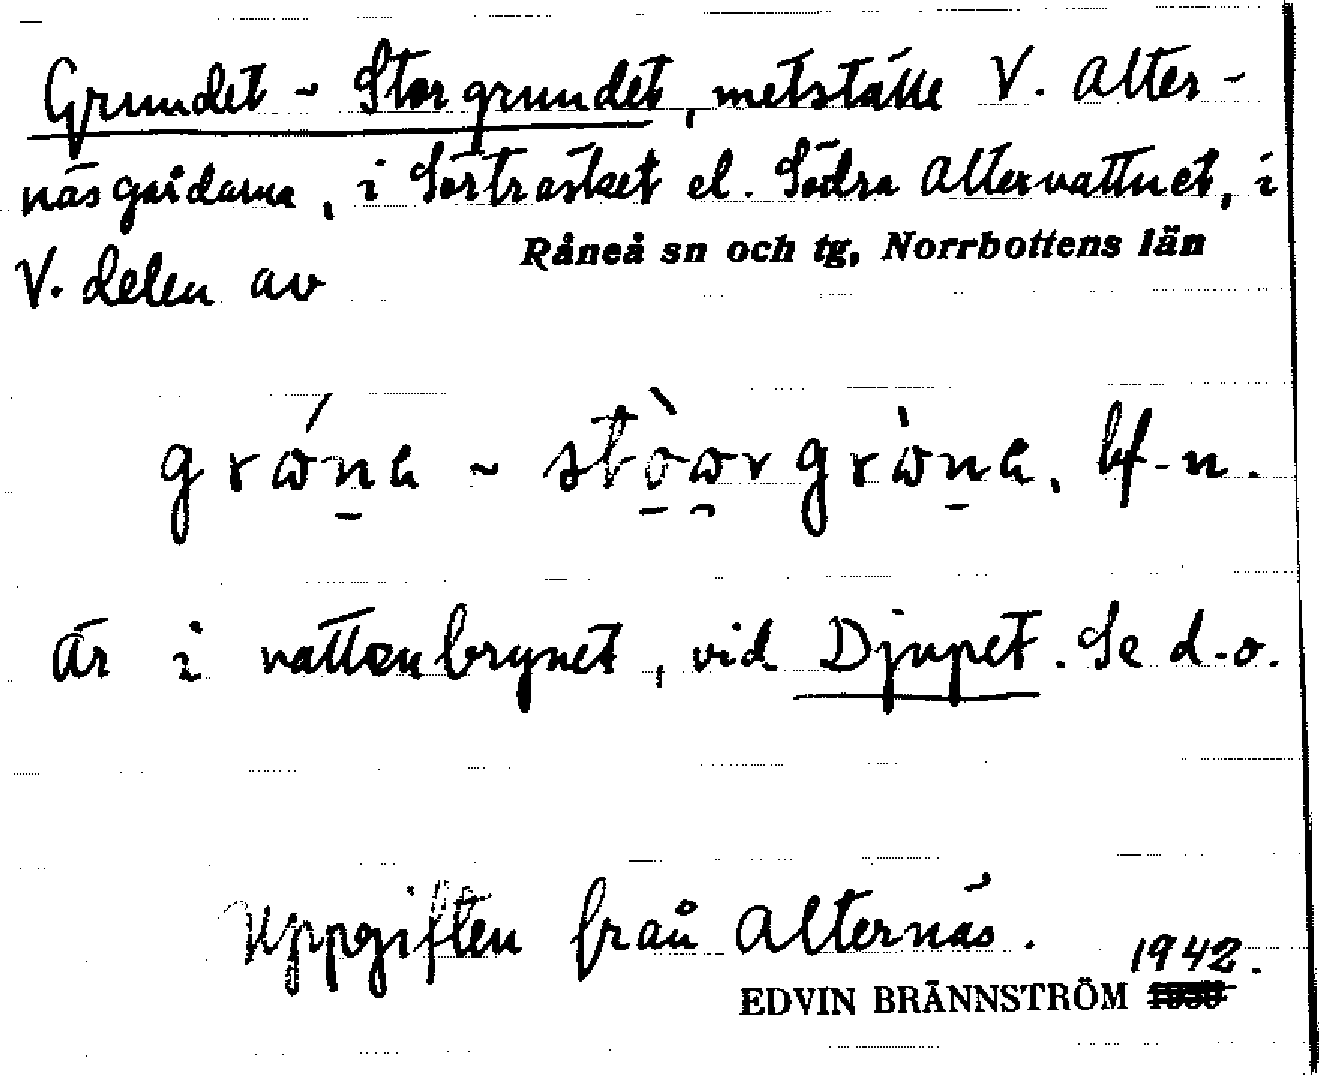 Grundet ~ Storgrundet, metställe V. Alter-
näsgårdarna, i Sörträsket el. Södra Altervattnet, i
Råneå sn och tg, Norrbottens län
V. delen av
grώn̲a ~ stò̲ωrgrὼn̲a, bf-n.
Är i vattenbrynet, vid Djupet. Se d.o.
Uppgiften från Alternäs.
1942.
EDVIN BRÄNNSTRÖM